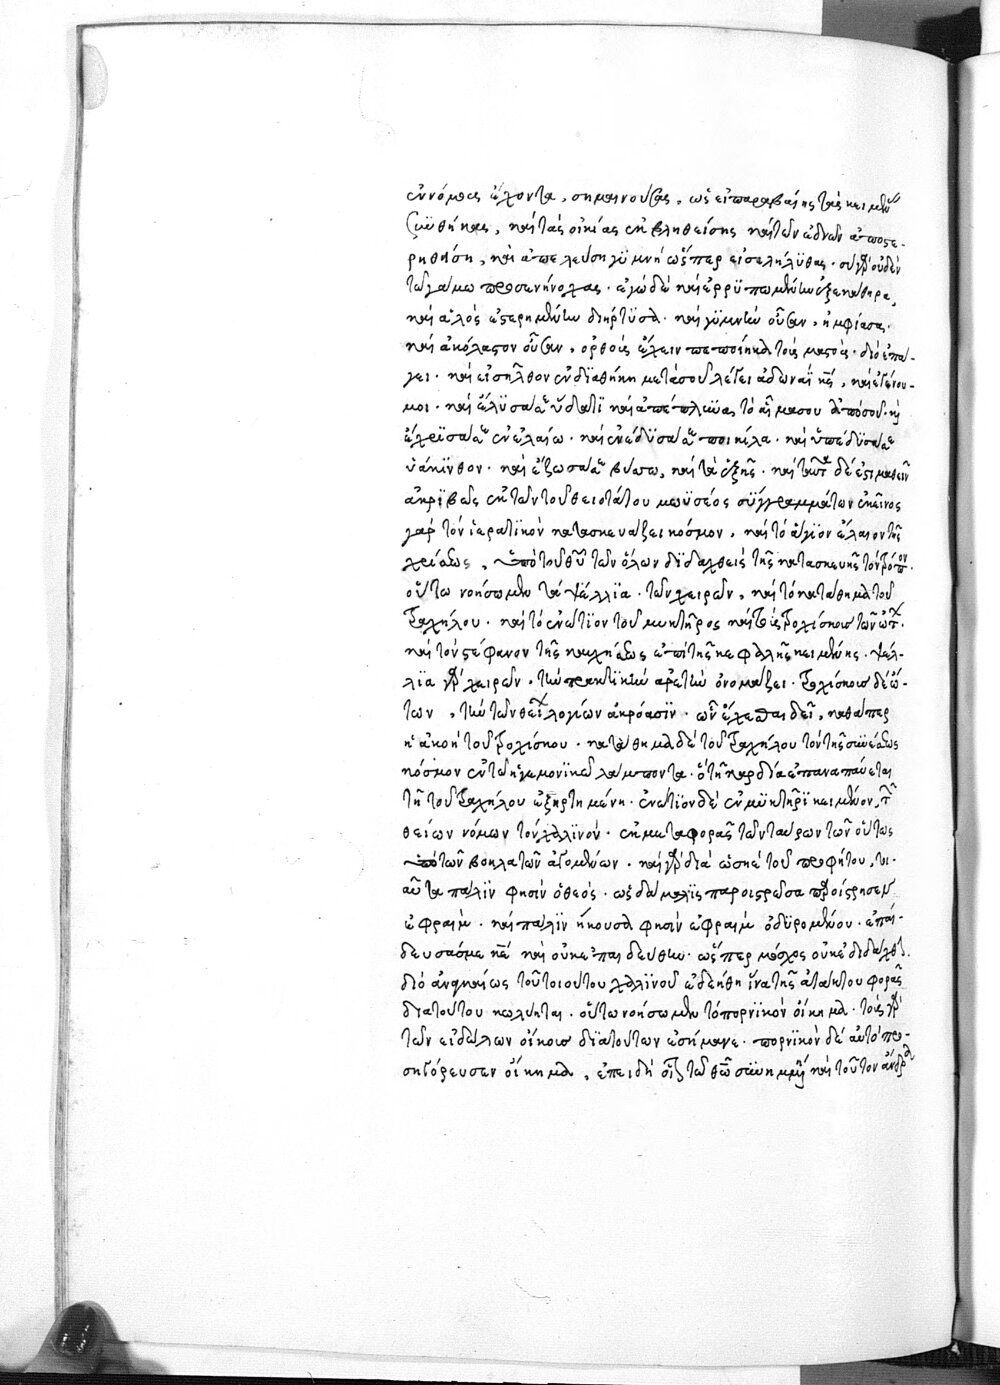 ἐννόμως ἔχοντα, σημαινούσας, ὡς εἰ παραβαίης τὰς κειμένας
συνθήκας, καὶ τὰς οἰκίας ἐκβληθείσης καὶ τῶν ἕδνων ἀποστε-
ρηθήση, καὶ ἀπελεύση γυμνὴ ὥσπερ εἰσελήλυθας. σὺ γὰρ οὐδὲν
τῶ γάμω προσενήνοχας. ἐγὼ δὲ καὶ ἐρρυπωμένην ἐξεκάθηρα,
καὶ ἁλὸς ἐστερημένην διήρτυσα. καὶ γυμνὴν οὖσαν, ἠμφίασα.
καὶ ἀκόλαστον οὖσαν, ὀρθοὺς ἔχειν πεποίηκα τοὺς μαστούς. διὸ ἐπά-
γει. καὶ εἰσῆλθον ἐν διαθήκη μετὰ σοῦ λέγει ἀδωναῒ κς, καὶ ἐγένου
μοι. καὶ ἔλουσά σε ὕδατι καὶ ἀπέπλυνας τὸ αἷμά σου ἀπὸ σοῦ. καὶ
ἔχρισά σε ἐν ἐλαίω. καὶ ἐνέδυσά σε ποικίλα. καὶ ὑπέδυσά σε
ὑάκινθον. καὶ ἔζωσά σε βύσσω, καὶ τὰ ἑξῆς. καὶ ταῦτα δέ ἐστι μαθεῖν
ἀκριβῶς ἐκ τῶν τοῦ θειοτάτου μωϋσέος συγγραμμάτων ἐκεῖνος
γὰρ τὸν ἱερατικὸν κατασκευάζει κόσμον, καὶ τὸ ἅγιον ἔλαιον τῆς
χρίσεως, ὑπὸ τοῦ θυ τῶν ὅλων διδαχθεὶς τῆς κατασκευῆς τὸν τρόπον.
οὕτω νοήσωμεν τὰ ψέλλια τῶν χειρῶν, καὶ τὸ κάθεμα τοῦ
τραχήλου. καὶ τὸ ἐνώτιον τοῦ μυκτῆρος καὶ τοὺς τροχίσκους τῶν ὤτων.
καὶ τὸν στέφανον τῆς καυχήσεως ἐπὶ τῆς κεφαλῆς κείμενης. ψέλ-
λια γὰρ χειρῶν, τὴν πρακτικὴν ἀρετὴν ὀνομάζει. τροχίσκους δὲ ὤ-
των, τὴν τῶν θείων λογίων ἀκρόασιν. ὧν ἔχεσθαι δεῖ, καθάπερ
ἡ ἀκοὴ τοῦ τροχίσκου. κάθεμα δὲ τοῦ τραχήλου τὸν τῆς συνέσεως
κόσμον ἐν τῶ ἡγεμονικῶ λάμποντα. ὃ τῆ καρδία ἐπαναπαύεται
τῆ τοῦ τραχήλου ἐξηρτημένη. ἐνώτιον δὲ ἐν μυκτῆρι κείμενον, τῶν
θείων νόμων τὸν χαλινόν. ἐκ μεταφορᾶς τῶν ταύρων τῶν οὕτως
ὑπὸ τῶν βοηλατῶν ἀγομένων. καὶ γὰρ διὰ ὡσηὲ τοῦ προφήτου, τοι-
αῦτα πάλιν φησὶν ὁ θεός. ὡς δάμαλις παροιστρῶσα παροίστρησεν
ἐφραίμ. καὶ πάλιν ἤκουσα φησὶν ἐφραίμ ὀδυρομένου. ἐπαί-
δευσάς με κε καὶ οὐκ ἐπαιδεύθην. ὥσπερ μόσχος οὐκ ἐδιδάχθην.
διὸ ἀναγκαίως τοῦ τοιούτου χαλινοῦ ἐδεήθη ἵνα τῆς ἀτάκτου φορᾶς
διὰ τούτου κωλύηται. οὕτω νοήσωμεν τὸ πορνικὸν οἴκημα. τοὺς γὰρ
τῶν εἰδώλων οἴκους διὰ τούτων ἐσήμανε. πορνικὸν δὲ αὐτὸ προ-
σηγόρευσεν οἴκημα, ἐπειδὴ τῶ θεῶ συνημμένη καὶ τοῦτον ἄνδρα